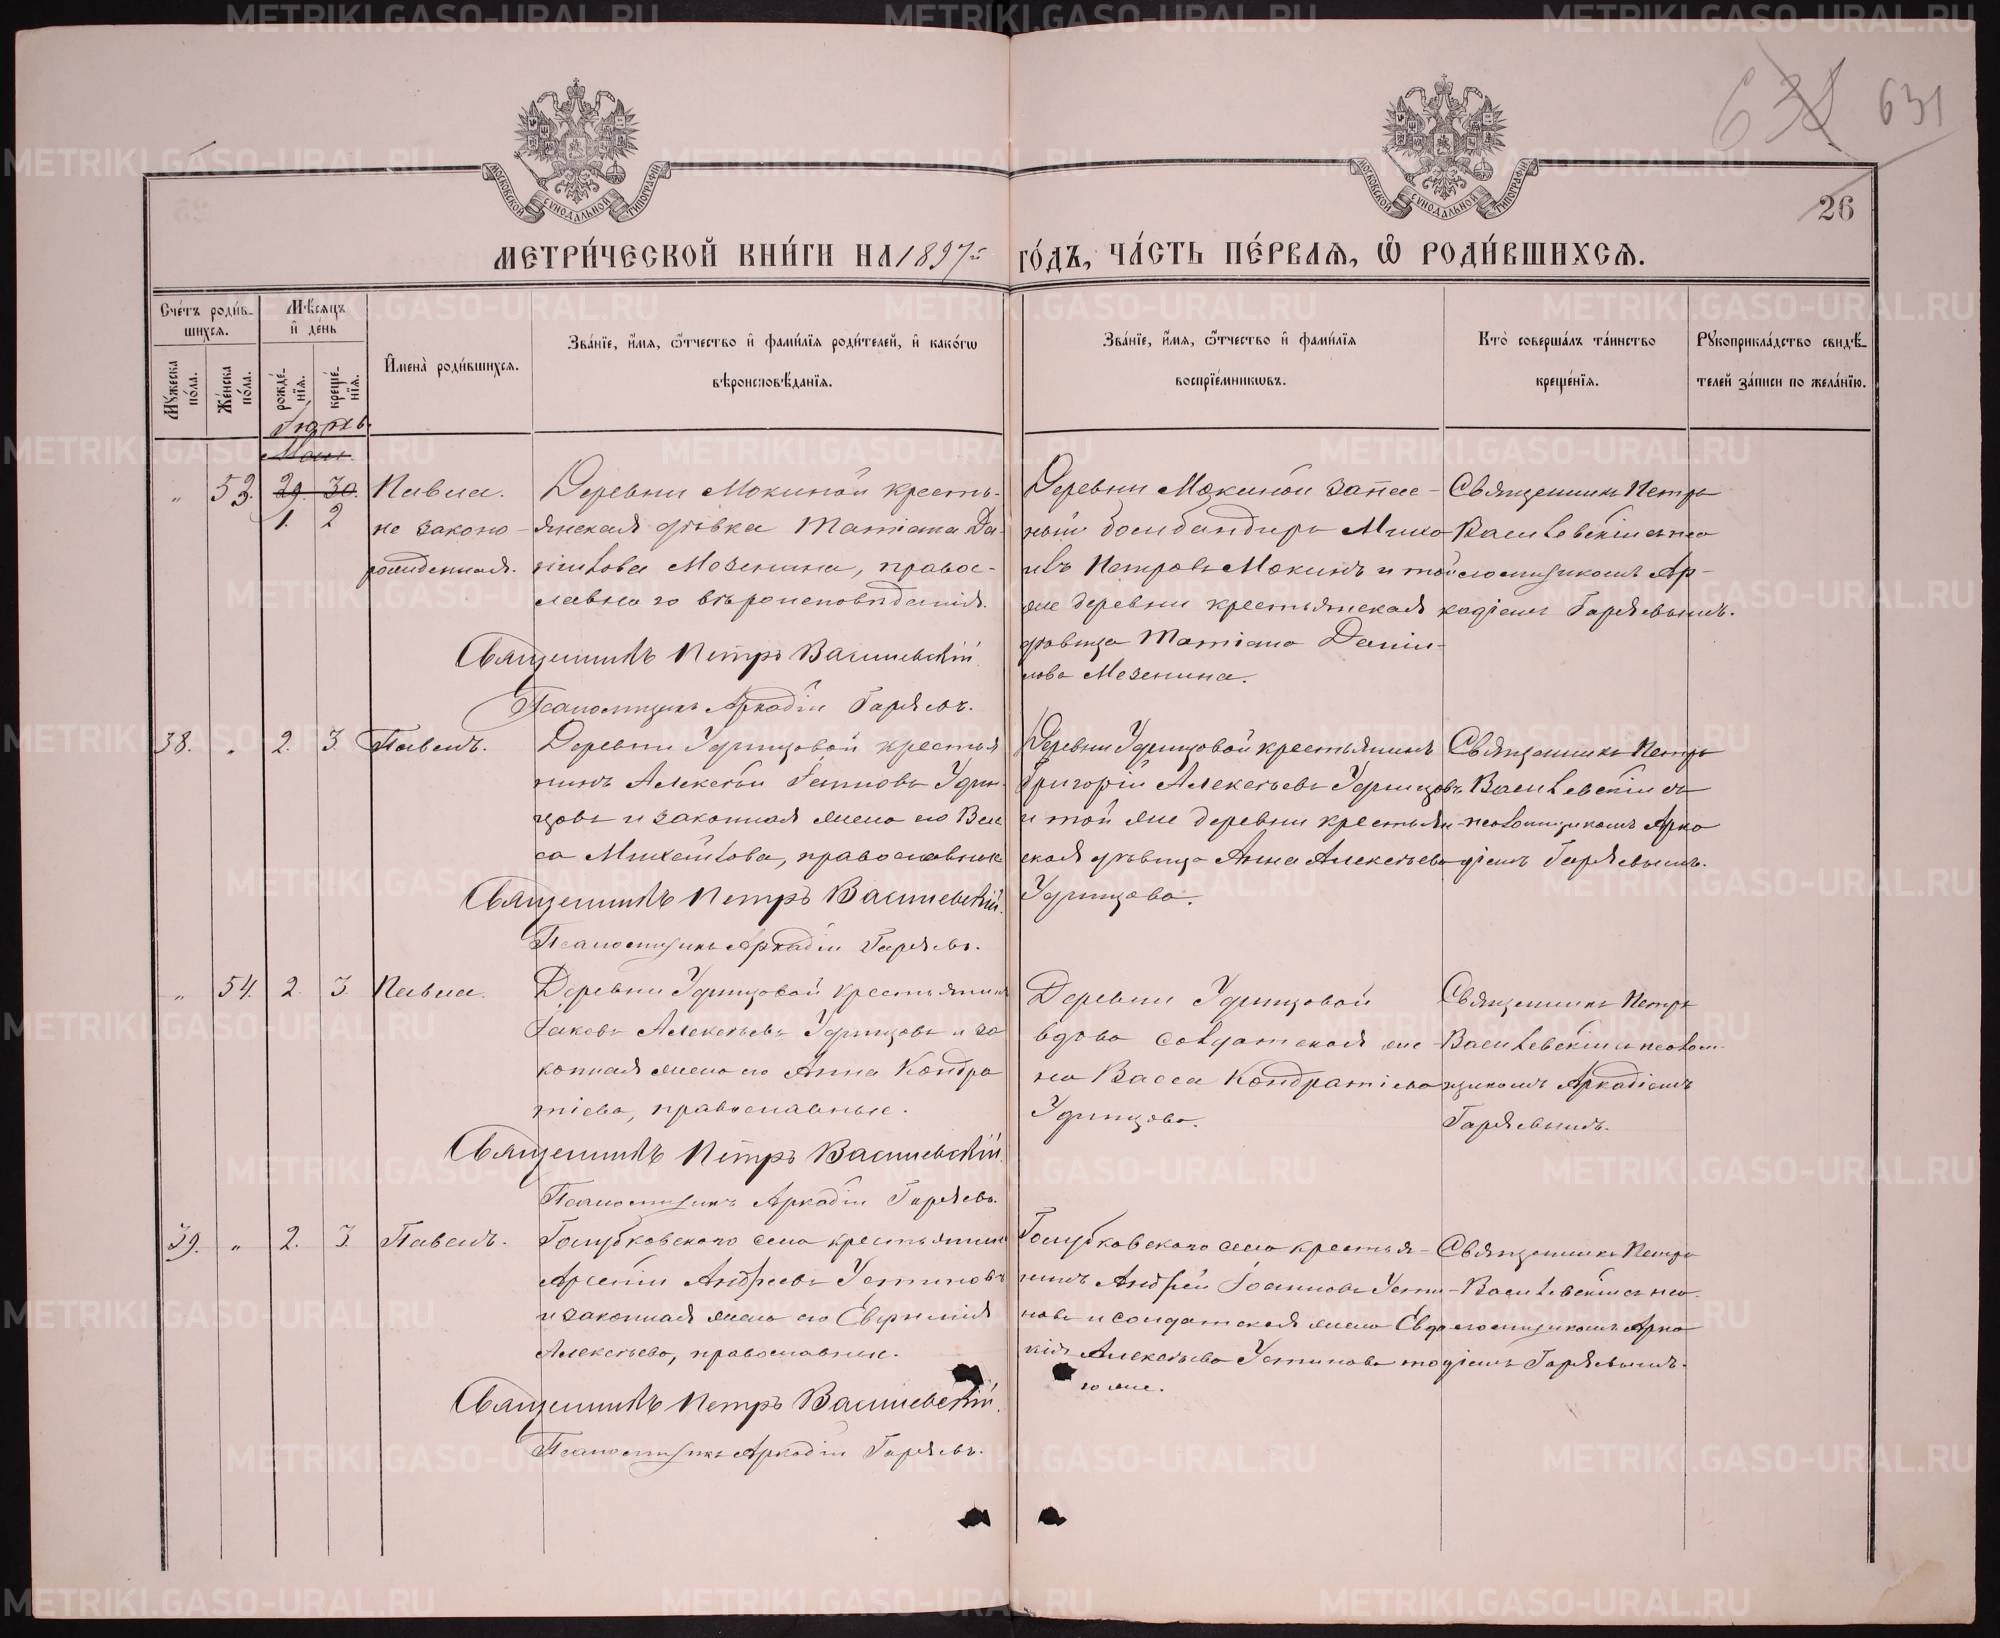 631
631
26
МОСКОВСКОЙ СѴНОДАЛЬНОЙ ТИПОГРАФІИ
МОСКОВСКОЙ СѴНОДАЛЬНОЙ ТИПОГРАФІИ
МЕТРИ́ЧЕСКОЙ КНИ́ГИ НА 1897й ГО́ДЪ, ЧА́СТЬ ПЕ́РВАЯ, Ѡ҆ РОДИ́ВШИХСЯ.
Сче́тъ роди́в-
шихся.
Мꙋ́жеска по́ла.
Же́нска по́ла.
Мѣ́сяцъ
и҆ де́нь
рожде́нїя.
креще́нїя.
И҆мена̀ роди́вшихся.
Зва́нїе, и҆́мя, ѻ҆́тчество и҆ фами́лїя роди́телей, и҆ како́гѡ
вѣроисповѣ́данїя.
Зва́нїе, и҆́мя, ѻ҆́тчество и҆ фами́лїя
воспрїе́мникѡвъ.
Кто̀ соверша́лъ та́инство
креще́нїя.
Рꙋкоприкла́дство свидѣ́-
телей за́писи по жела́нїю.
Іюнь.
Маи.
„ 53. 29. 30.
1. 2
Павла.
не законо-
рожденная.
Деревни Мокиной кресть-
янская дѣвка Татіана Да-
нилова Мезенина, правос-
лавнаго вѣроисповѣданія.
Священникъ Петръ Василевскій
Псаломщикъ Аркадіи Гаряевъ.
Деревни Мокиной запас-
ный бомбандиръ Миха
илъ Петровъ Мокинъ и той
же деревни крестьянская
дѣвица Татіана Данил-
лова Мезенина.
Священникъ Петръ
Василевскіи съ пса
ломщикомъ Ар-
кадіемъ Гаряевымъ.
38. „ 2. 3. Павелъ.
Деревни Удинцовой крестья
нинъ Алексѣй Іанновъ Удин-
цовъ и законная жена его Вас
са Михаилова, православные
Священникъ Петръ Василевскій.
Псаломщикъ Аркадіи Гаряевъ.
Деревни Удинцовой крестьянинъ
Григоріи Алексѣевъ Удинцовъ
и той же деревни крестьян-
ская дѣвица Анна Алексѣева
Удинцова.
Священникъ Петръ
Василевскіи съ
псаломщикомъ Арка
діемъ Гаряевымъ.
„ 54. 2. 3. Павла.
Деревни Удинцовой крестьянинъ
Іаковъ Алексѣевъ Удинцовъ и за
конная жена его Анна Кондра
тіева, православные.
Священникъ Петръ Василевскій.
Псаломщикъ Аркадіи Гаряевъ.
Деревни Удинцовой
вдова солдатская же-
на Васса Кондратіева
Удинцова.
Священникъ Петръ
Василевскіи съ псалом-
щикомъ Аркадіемъ
Гаряевымъ.
39. „ 2. 3. Павелъ.
Голубковскаго села крестьянинъ
Арсеніи Андреевъ Устиновъ
и законная жена его Евфимія
Алексѣева, православные.
Священникъ Петръ Василевскій.
Псаломщикъ Аркадіи Гаряевъ.
Голубковскаго села крестья-
нинъ Андрей Іоанновъ Усти-
новъ и солдатская жена Евдо
кія Алексѣева Устинова то
го же.
Священникъ Петръ
Василевскіи съ пса
ломщикомъ Арка
діемъ Гаряевымъ.
METRIKI.GASO-URAL.RU